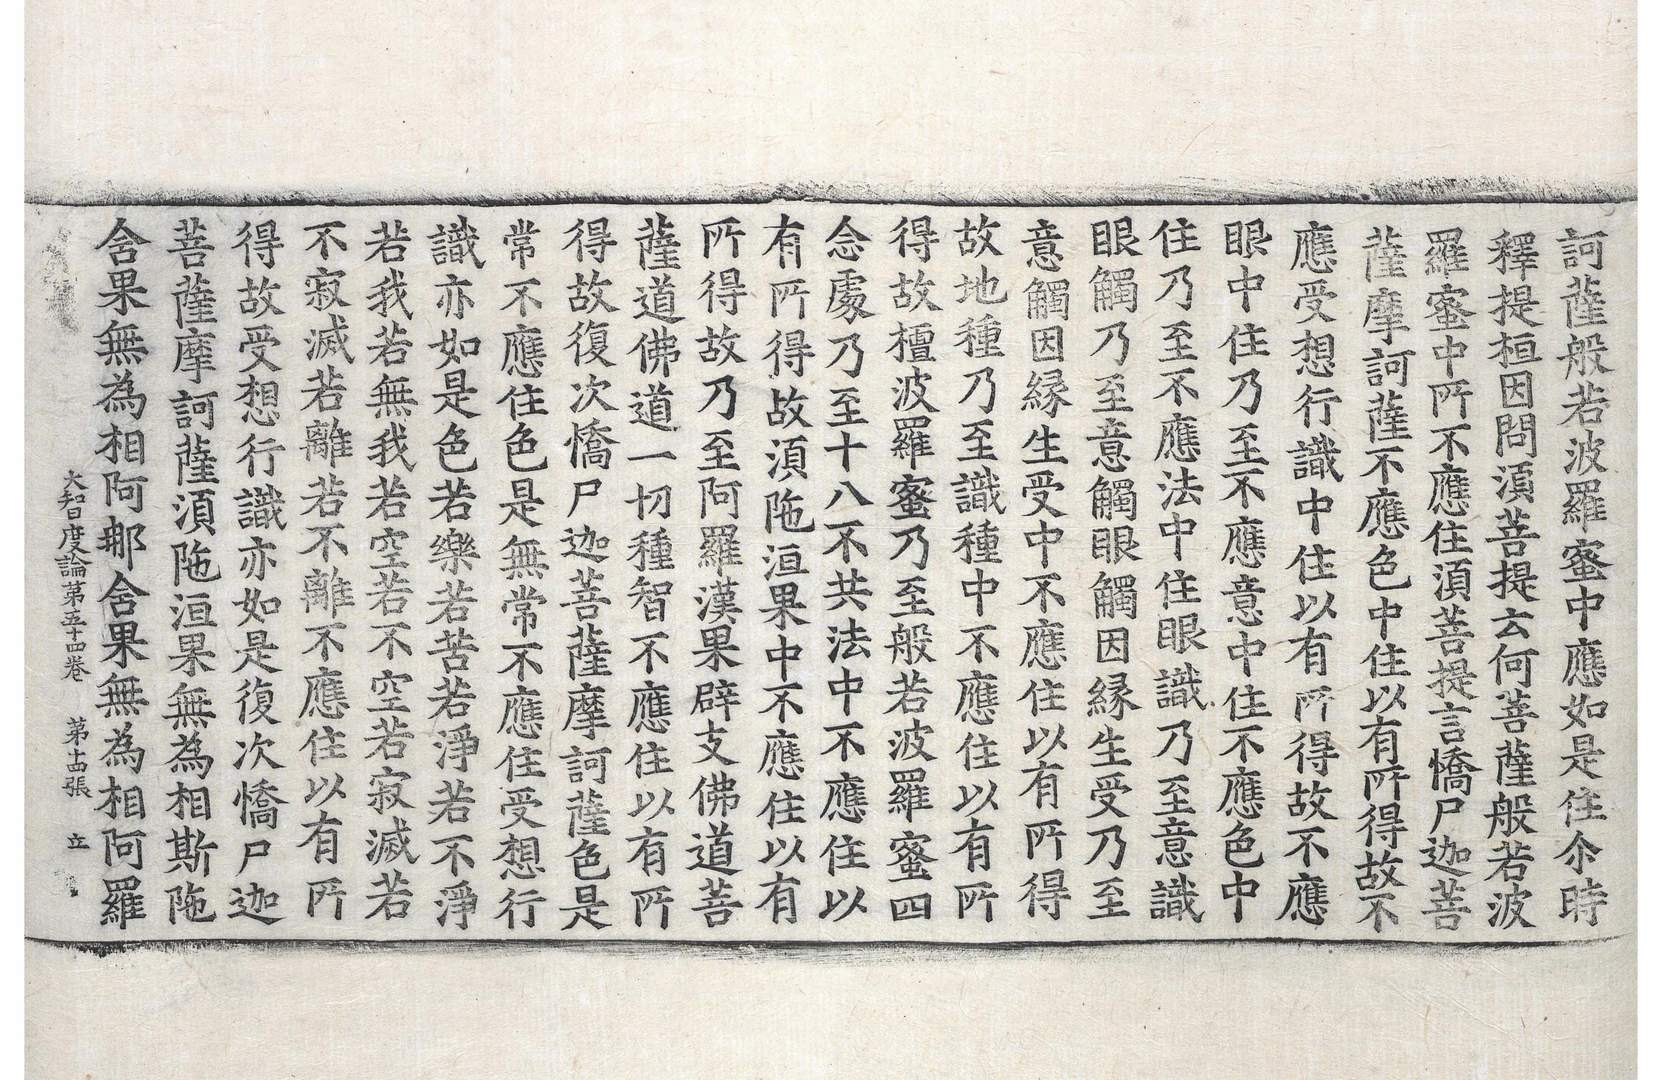 訶薩般若波羅蜜中應如是住尒時
釋提桓因問湏菩提云何菩薩般若波
羅蜜中所不應住湏菩提言憍尸迦菩
薩摩訶薩不應色中住以有所得故不
應受想行識中住以有所得故不應
眼中住乃至不應意中住不應色中
住乃至不應法中住眼識乃至意識
眼觸乃至意觸眼觸因緣生受乃至
意觸因緣生受中不應住以有所得
故地種乃至識種中不應住以有所
得故檀波羅蜜乃至般若波羅蜜四
念處乃至十八不共法中不應住以
有所得故湏陁洹果中不應住以有
所得故乃至阿羅漢果辟支佛道菩
薩道佛道一切種智不應住以有所
得故復次憍尸迦菩薩摩訶薩色是
常不應住色是無常不應住受想行
識亦如是色若樂若苦若淨若不淨
若我若無我若空若不空若寂滅若
不寂滅若離若不離不應住以有所
得故受想行識亦如是復次憍尸迦
菩薩摩訶薩湏陁洹果無為相斯陁
含果無為相阿那含果無為相阿羅
大智度論第五十四卷 第十四張 立